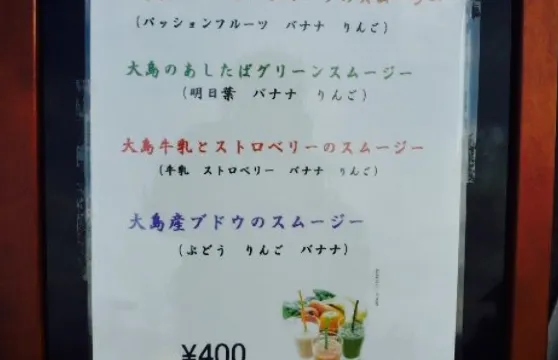 のスムージー
(パッションフルーツ バナナ りんご)
大島のあしたばグリーンスムージー
(明日葉 バナナ りんご)
大島牛乳とストロベリーのスムージー
(牛乳 ストロベリー バナナ りんご)
大島産ブドウのスムージー
(ぶどう りんご バナナ)
¥400